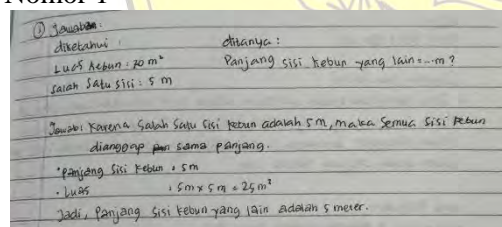 Nomor 1
① Jawaban:
diketahui : ditanya :
Luas kebun : 70 m² Panjang sisi kebun yang lain = ... m ?
salah satu sisi : 5 m
Jawab: Karena salah satu sisi kebun adalah 5 m, maka semua sisi kebun
dianggap sama panjang.
• panjang sisi kebun : 5m
• Luas : 5m x 5m = 25 m²
Jadi, Panjang sisi kebun yang lain adalah 5 meter.